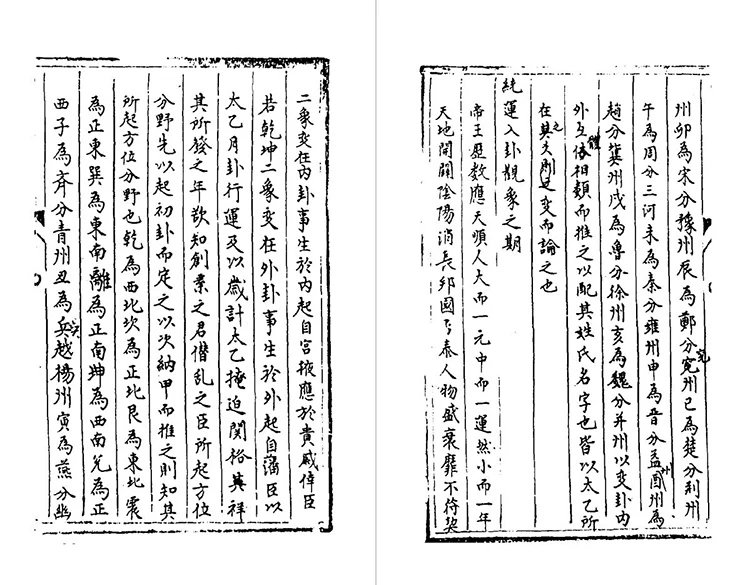 二象变在内卦事生於内起自宫掖應於貴戚倖臣
若乾坤二象变在外卦事生於外起自藩臣以
太乙月卦行運及以歲計太乙掩迫関格其祥
其所發之年欲知創業之君僭乱之臣所起方位
分野先以起初卦而定之以次納甲而推之則知其
所起方位分野也乾為西北坎為正北艮為東北震
為正東巽為東南離為正南坤為西南兑為正
西子為齐分青州丑為吴越揚州寅為燕分幽
州卯為宋分豫州辰為鄭分兖州巳為楚分荆州
午為周分三河未為秦分雍州申為晋分益州酉為
趙分冀州戌為魯分徐州亥為魏分并州以变卦内
外互體相類而推之以配其姓氏名字也皆以太乙所
在之其变而論之也
統運入卦觀象之期
帝王歷数應天順人大而一元中而一運然小而一年
天地開闢陰陽消長邦國否泰人物盛衰靡不待契